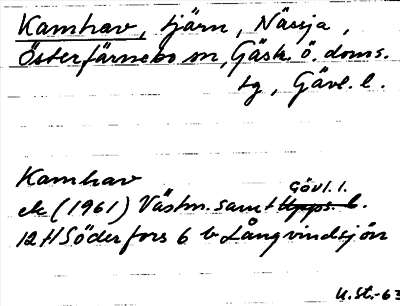 Kamhav, tjärn, Nässja,
Österfärnebo sn, Gäsk. ö. doms.
tg, Gävl. l.
Kamhav
ek (1961) Västm. samt Upps. l. Gävl. l.
12 H Söderfors 6 b Långvindsjön
U.St.-63